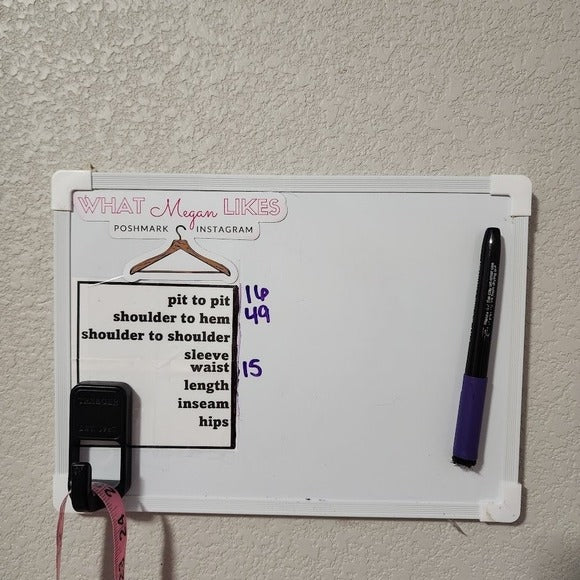 WHAT Megan LIKES
POSHMARK INSTAGRAM
pit to pit 16
shoulder to hem 49
shoulder to shoulder
sleeve
waist 15
length
inseam
hips
TRAEGER